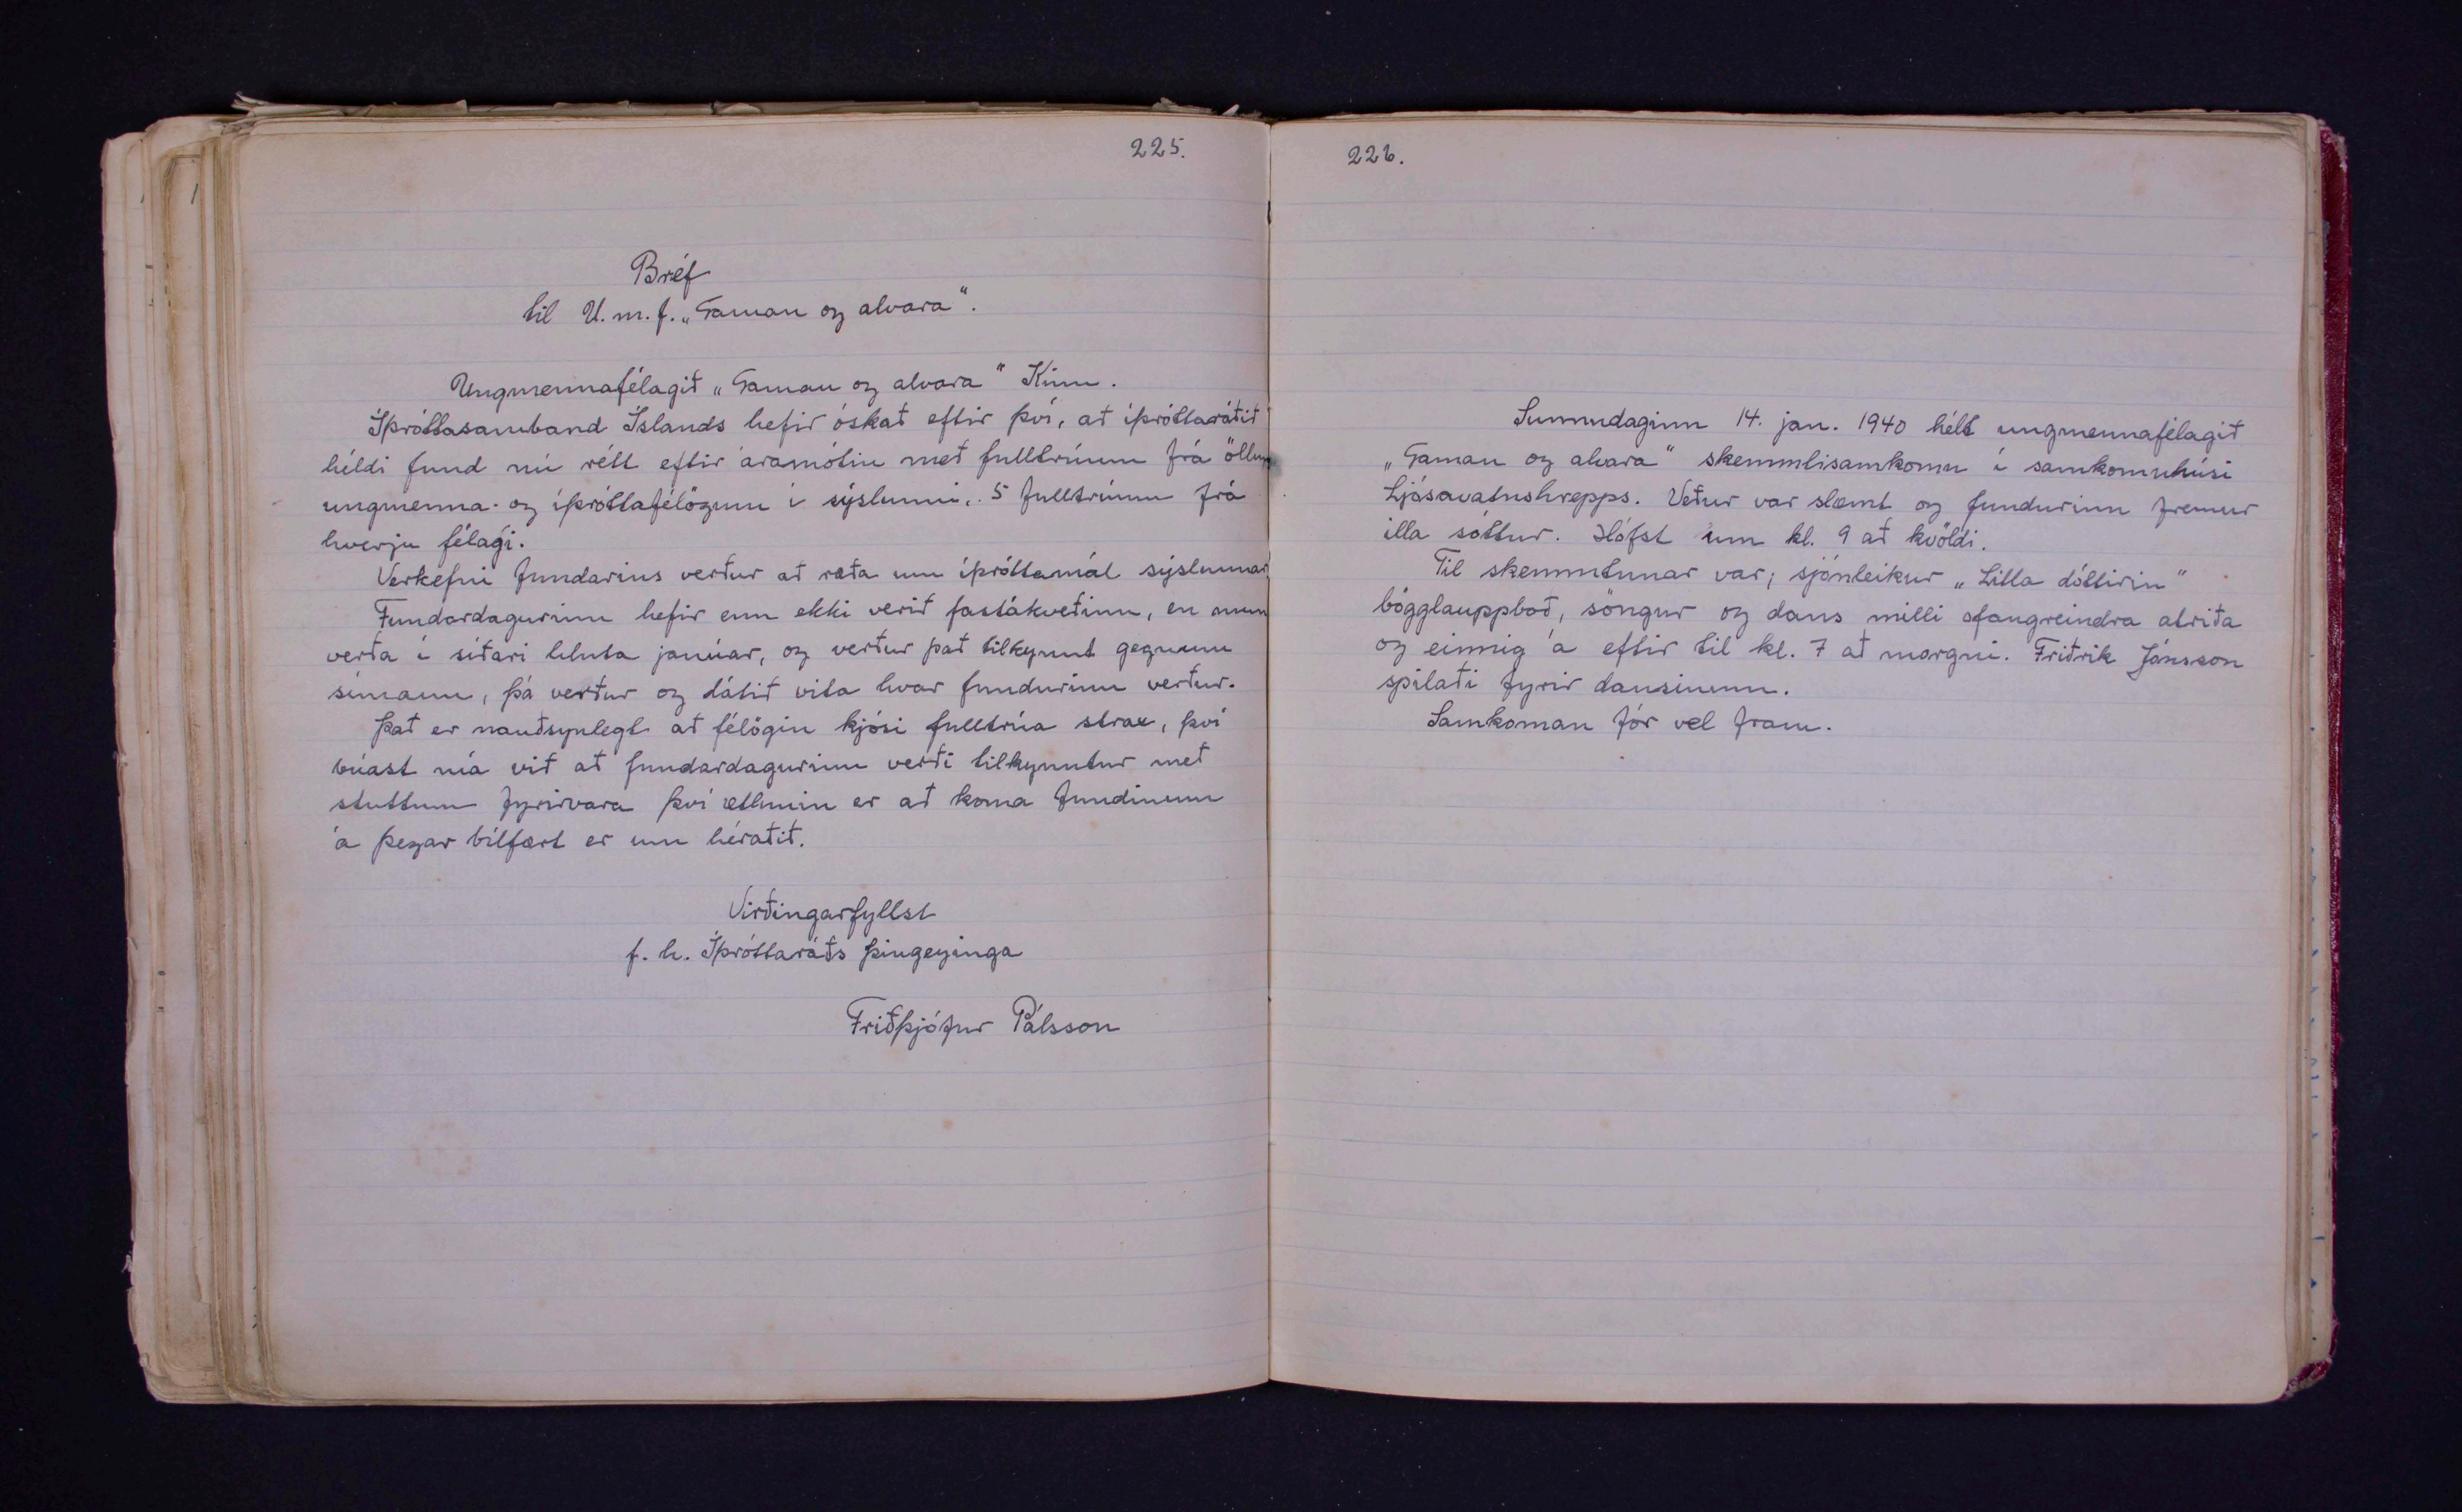 225.
Bréf
til U.m.f. „Gaman og alvara".
Ungmennafélagið „Gaman og alvara" Kinn.
Íþróttasamband Íslands hefir óskað eftir því, að íþróttaráðið
héldi fund nú rétt eftir áramótin með fulltrúum frá öllum
ungmenna- og íþróttafélögum í sýslunni, 5 fulltrúum frá
hverju félagi.
Verkefni fundarins verður að ræða um íþróttamál sýslunnar
Fundardagurinn hefir enn ekki verið fastákveðinn, en mun
verða í síðari hluta janúar, og verður það tilkynnt gegnum
símann, þá verður og látið vita hvar fundurinn verður.
Það er nauðsynlegt að félögin kjósi fulltrúa strax, því
búast má við að fundardagurinn verði tilkynntur með
stuttum fyrirvara því ætlunin er að koma fundinum
á þegar bílfært er um héraðið.
Virðingarfyllst
f. h. Íþróttaráðs Þingeyinga
Friðþjófur Pálsson
226.
Sunnudaginn 14. jan. 1940 hélt ungmennafélagið
„Gaman og alvara" skemmtisamkomu í samkomuhúsi
Ljósavatnshrepps. Veður var slæmt og fundurinn fremur
illa sóttur. Hófst um kl. 9 að kvöldi.
Til skemmtunar var; sjónleikur „Litla dóttirin"
bögglauppboð, söngur og dans milli ofangreindra atriða
og einnig á eftir til kl. 7 að morgni. Friðrik Jónsson
spilaði fyrir dansinum.
Samkoman fór vel fram.